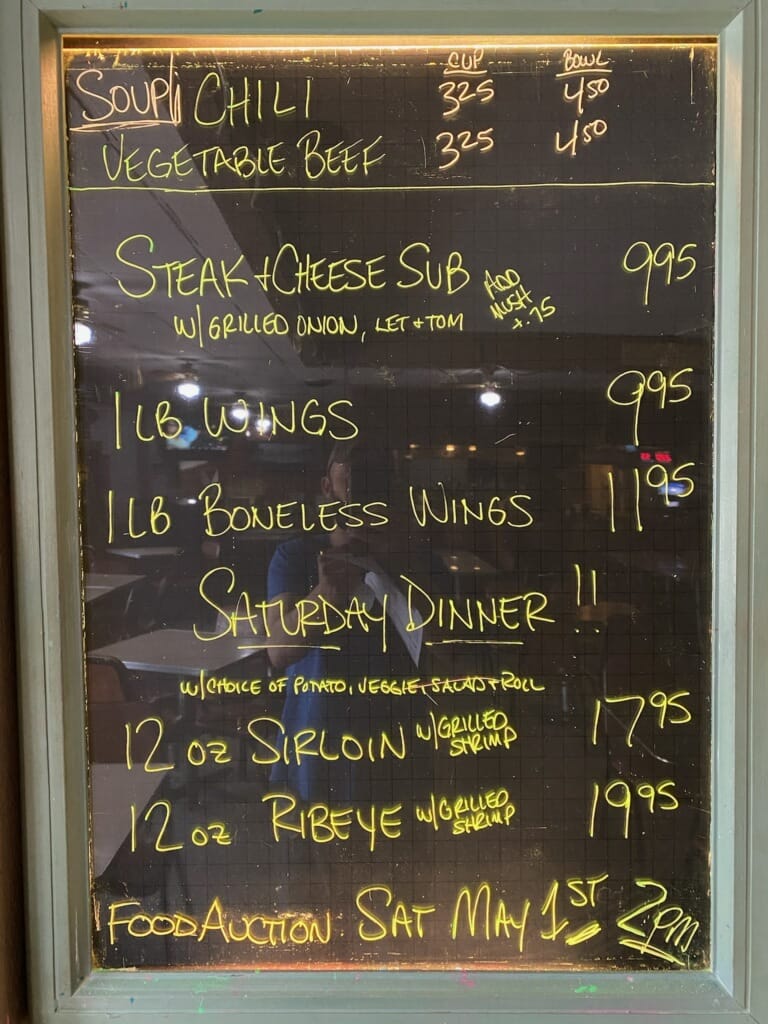 CUP BOWL
SOUP/ CHILI 325 450
VEGETABLE BEEF 325 450
STEAK + CHEESE SUB 995
ADD MUSH +.75
W/ GRILLED ONION, LET + TOM
1 LB WINGS 995
1 LB BONELESS WINGS 1195
SATURDAY DINNER !!
W/CHOICE OF POTATO, VEGGIE, SALAD + ROLL
12 OZ SIRLOIN W/GRILLED SHRIMP 1795
12 OZ RIBEYE W/GRILLED SHRIMP 1995
FOOD AUCTION SAT MAY 1ST 2PM